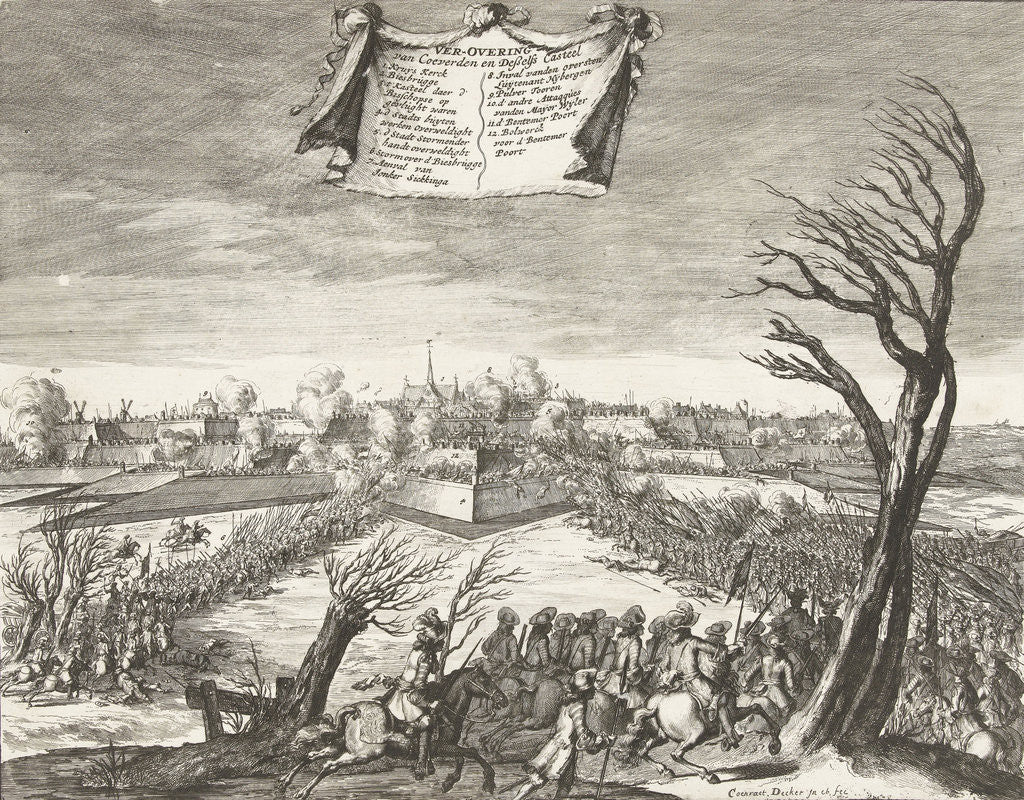 VER-OVERING
van Coeverden en Deßelfs Casteel
1. Kruys Kerck
2. Biesbrugge
3. t Kasteel daer d'
Bisschopse op
gevlught waren
4. d Stadts buyten
werken overweldight
5. d Stadt Stormender
handt overweldight
6. Storm over d Biesbrugge
7. Aenval van
Jonker Sickkinga
8. Inval vanden oversten
Luytenant Nybergen
9. Pulver Tooren
10. d andre Attacques
vanden Mayor Wyler
11. d Bentemer Poort
12. Bolwerck
voor d Bentemer
Poort
12
Coenraet Decker in et fec